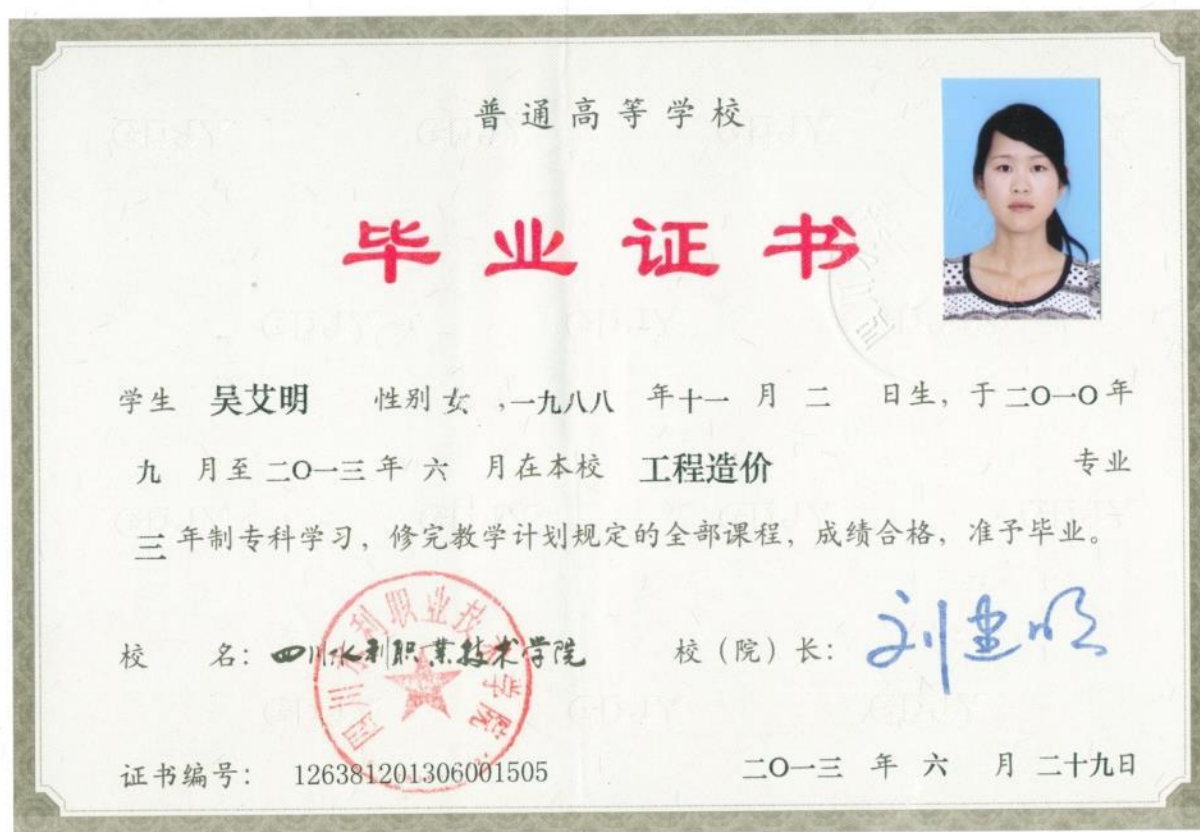 普通高等学校
毕业证书
学生 吴艾明 性别 女 ,一九八八 年十一 月 二 日生，于二O一O年
九 月至 二O一三 年 六 月在本校 工程造价 专业
三 年制专科学习，修完教学计划规定的全部课程，成绩合格，准予毕业。
校 名：四川水利职业技术学院 校（院）长：
四川水利职业技术学院
证书编号： 126381201306001505 二O一三 年 六 月 二十九日